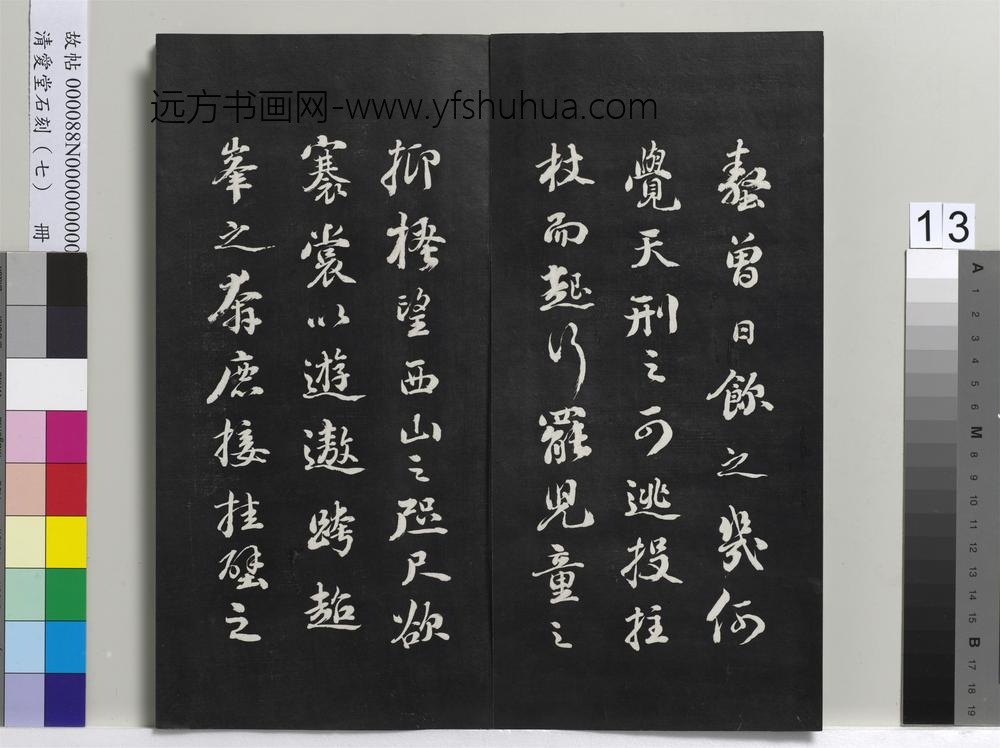 远方书画网-www.yfshuhua.com
螯曾日飲之幾何
覺天刑之可逃投拄
杖而起行罷兒童之
抑搔望西山之咫尺欲
褰裳以遊遨跨超
峯之奔鹿接挂壁之
故帖 000088N000000000
清愛堂石刻（七） 冊
13
A 1 2 3 4 5 6 M 8 9 10 11 12 13 14 15 B 17 18 19